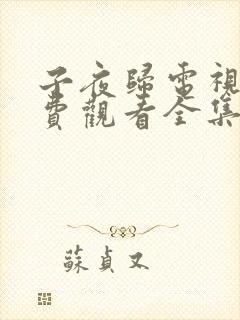 子夜歸電視
費觀看全集
蘇貞又